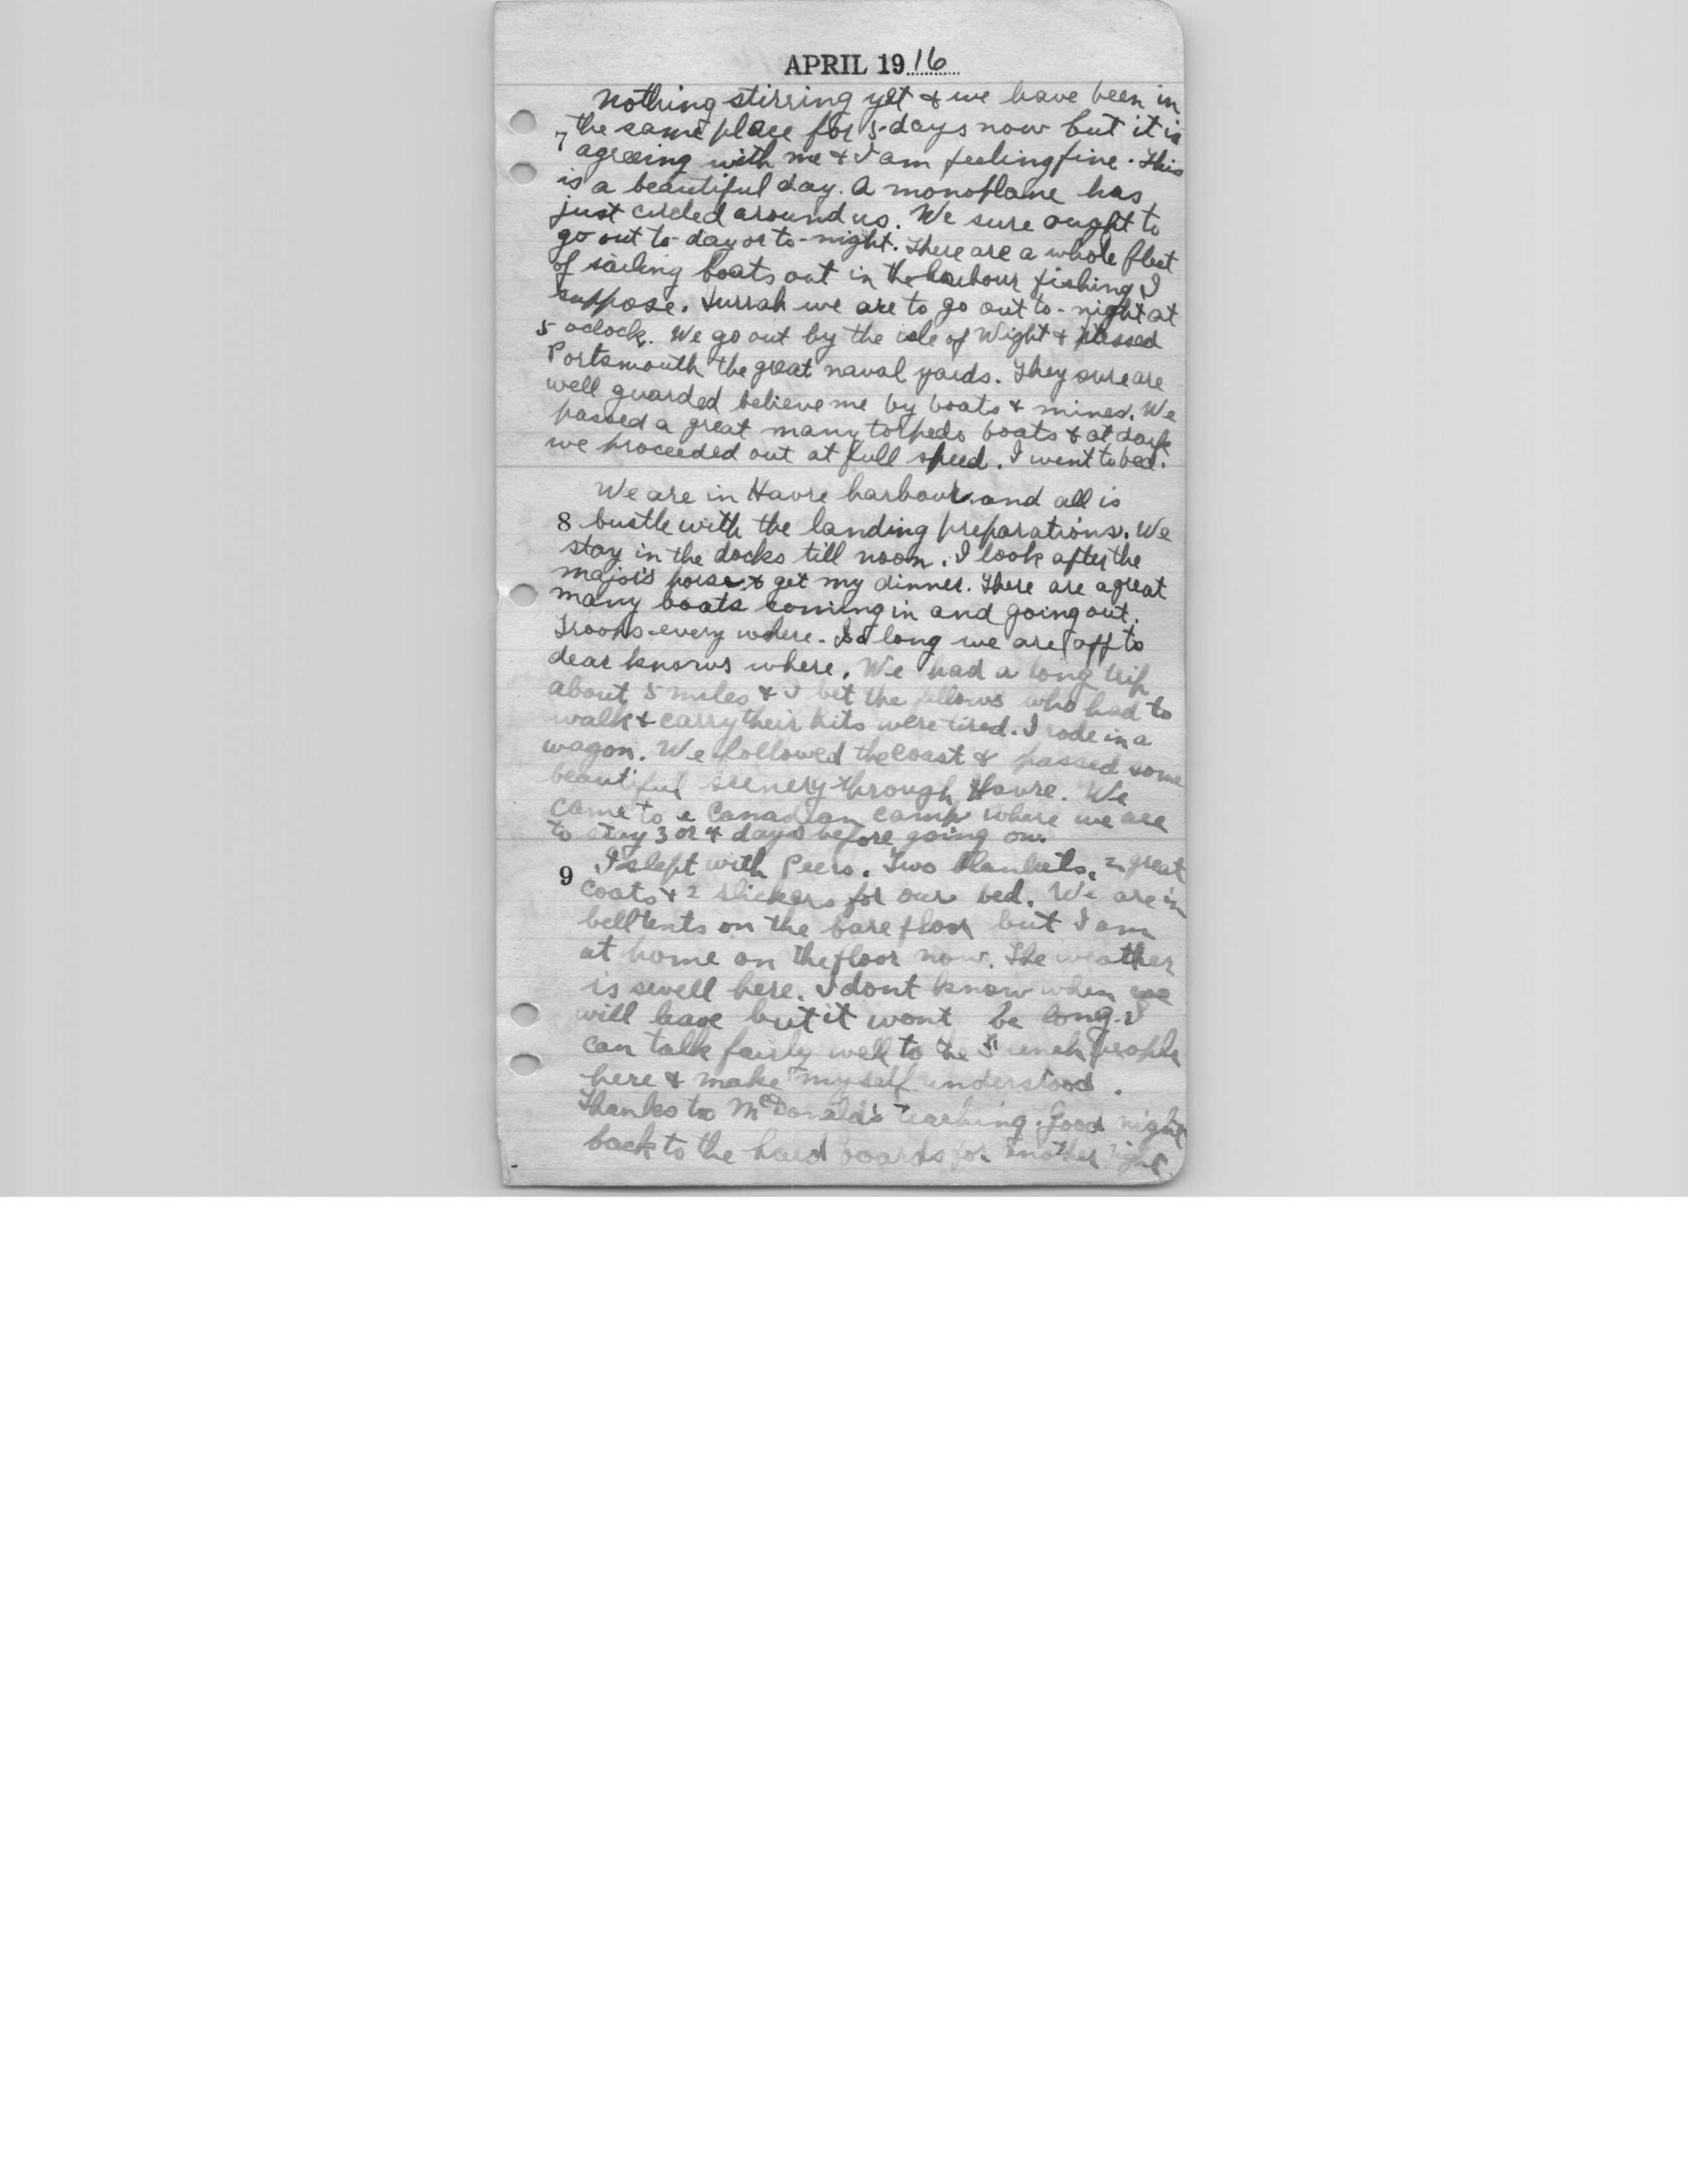 APRIL 1916
Nothing stirring yet & we have been in
the same place for 5 days now but it is
7 agreeing with me & I am feeling fine. This
is a beautiful day. A monoplane has
just circled around us. We sure ought to
go out to-day or to-night. There are a whole fleet
of sailing boats out in the harbour fishing I
suppose. Hurrah we are to go out to-night at
5 oclock. We go out by the isle of Wight & passed
Portsmouth the great naval yards. They sure are
well guarded believe me by boats & mines. We
passed a great many torpedo boats & at dark
we proceeded out at full speed. I went to bed.
We are in Havre harbour and all is
8 bustle with the landing preparations. We
stay in the docks till noon. I look after the
major's horse & get my dinner. There are a great
many boats coming in and going out.
Troops every where. So long we are off to
dear knows where. We had a long trip
about 5 miles & I bet the fellows who had to
walk & carry their kits were tired. I rode in a
wagon. We followed the coast & passed some
beautiful scenery through Havre. We
came to a Canadian camp where we are
to stay 3 or 4 days before going on.
I slept with Peers. Two blankets, 2 great
9 coats & 2 slickers for our bed. We are in
bell tents on the bare floor but I am
at home on the floor now. The weather
is swell here. I dont know when we
will leave but it wont be long. I
can talk fairly well to the French people
here & make myself understood.
Thanks to McDonald's teaching. Good night
back to the hard boards for another night.